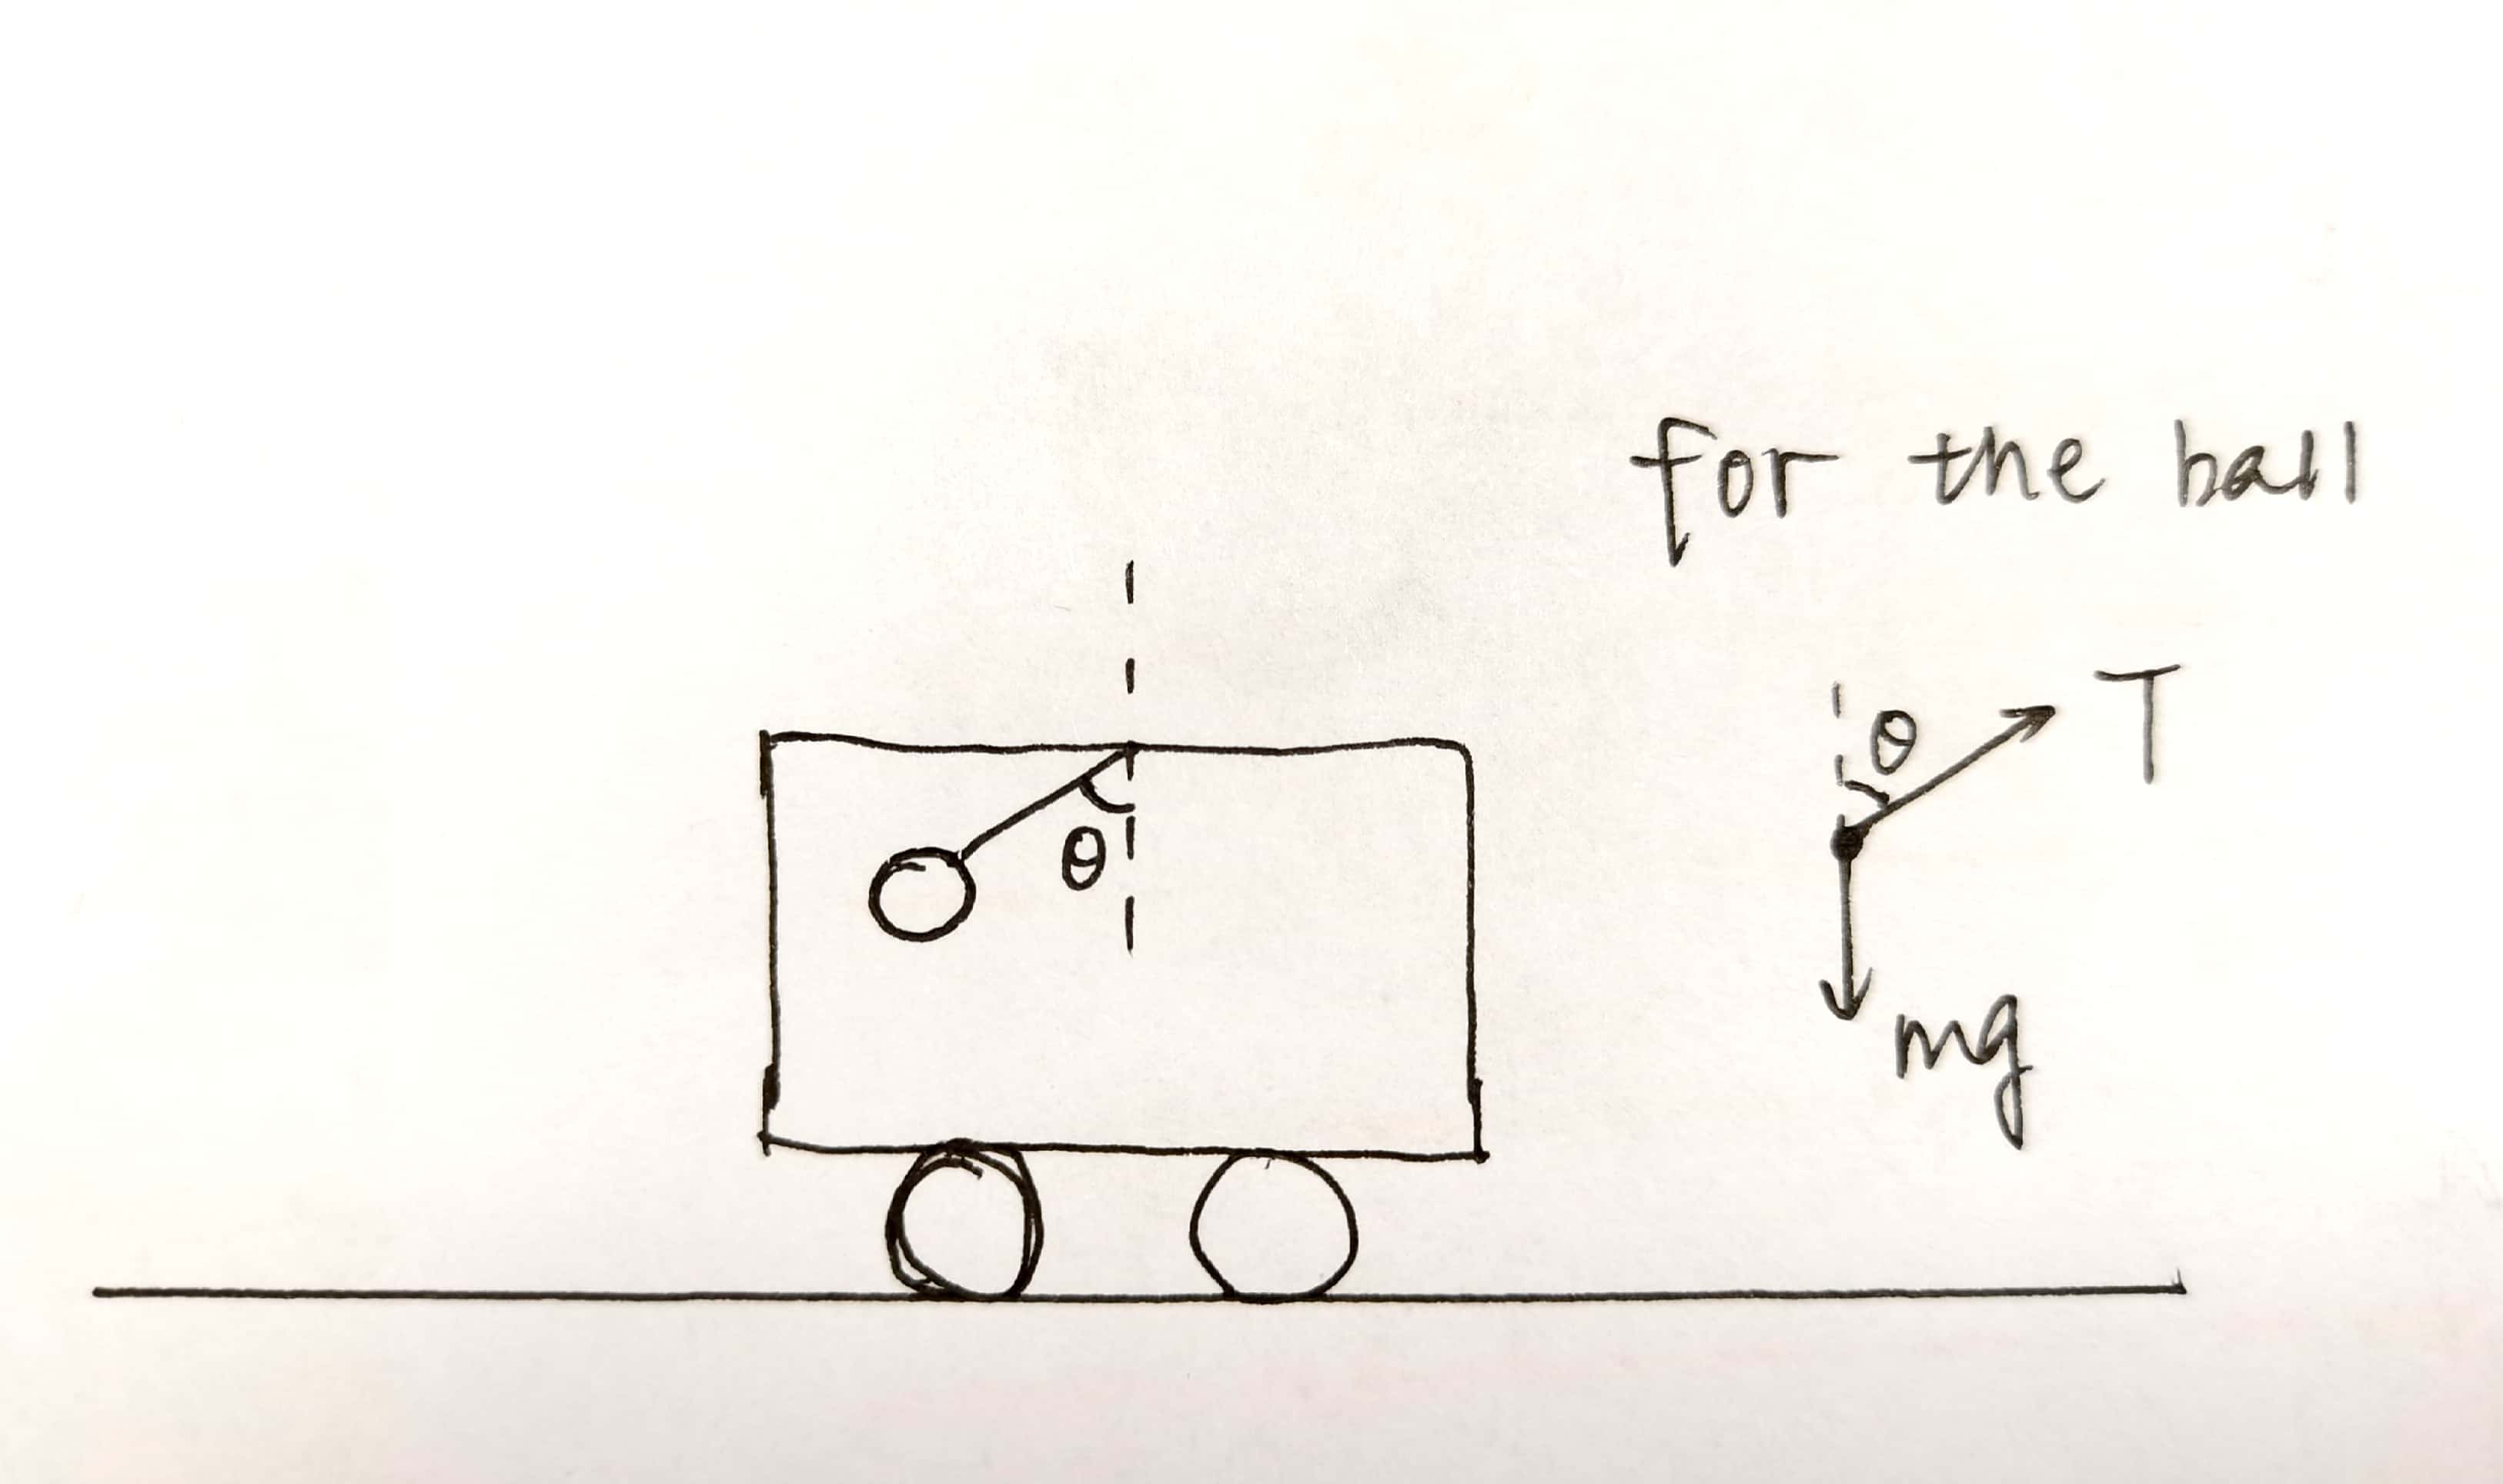 for the ball
θ
T
θ
mg